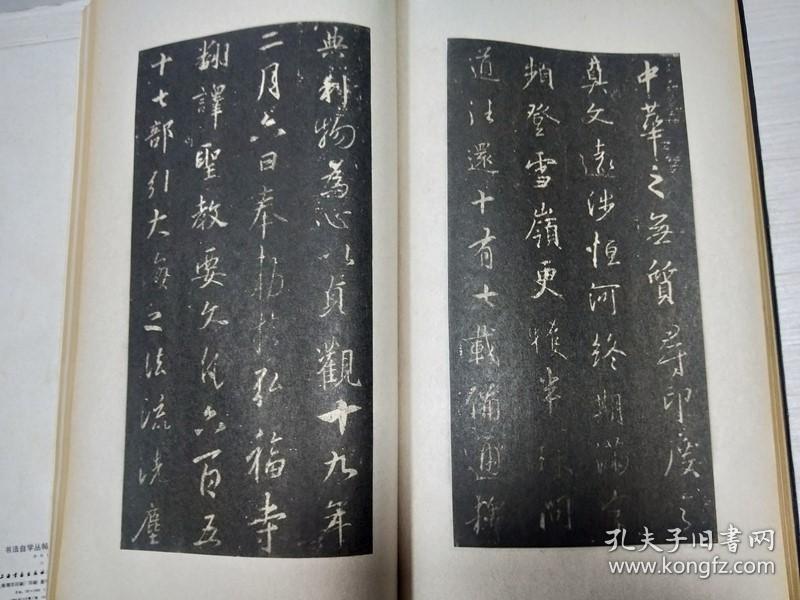 中華之無質尋印度之
真文遠涉恒河終期滿字
頻登雪嶺更獲半珠問
道往還十有七載備通釋
典利物為心以貞觀十九年
二月六日奉敕於弘福寺
翻譯聖教要文凡六百五
十七部引大海之法流洗塵
书法自学丛帖
孔夫子旧书网
www.kongfz.com